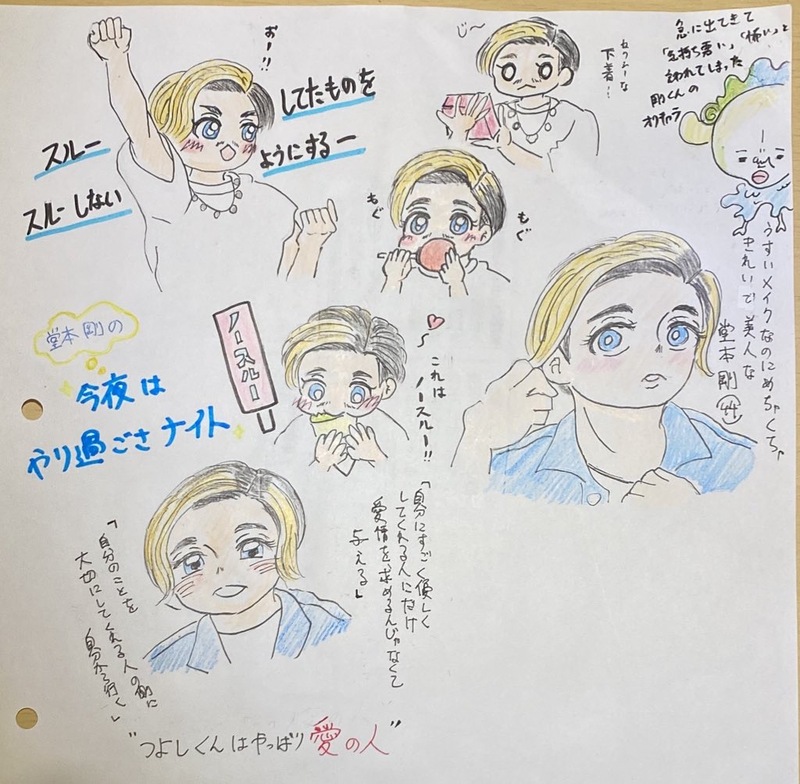 おー!!
スルー
してたものを
スルーしない
ようにするー
じ〜
セクシーな
下着…
急に出てきて
「気持ち悪い」「怖い」と
言われてしまった
剛くんの
オリキャラ
もぐ
もぐ
堂本剛の
今夜は
やり過ごさナイト
ノースルー
これは
ノースルー!!
うすいメイクなのにめちゃくちゃ
きれいで美人な
堂本剛
「自分にすごく優しく
してくれる人にだけ
愛情を求めるんじゃなくて
与える」
「自分のことを
大切にしてくれる人の前に
自分から行く」
"つよしくんはやっぱり愛の人"